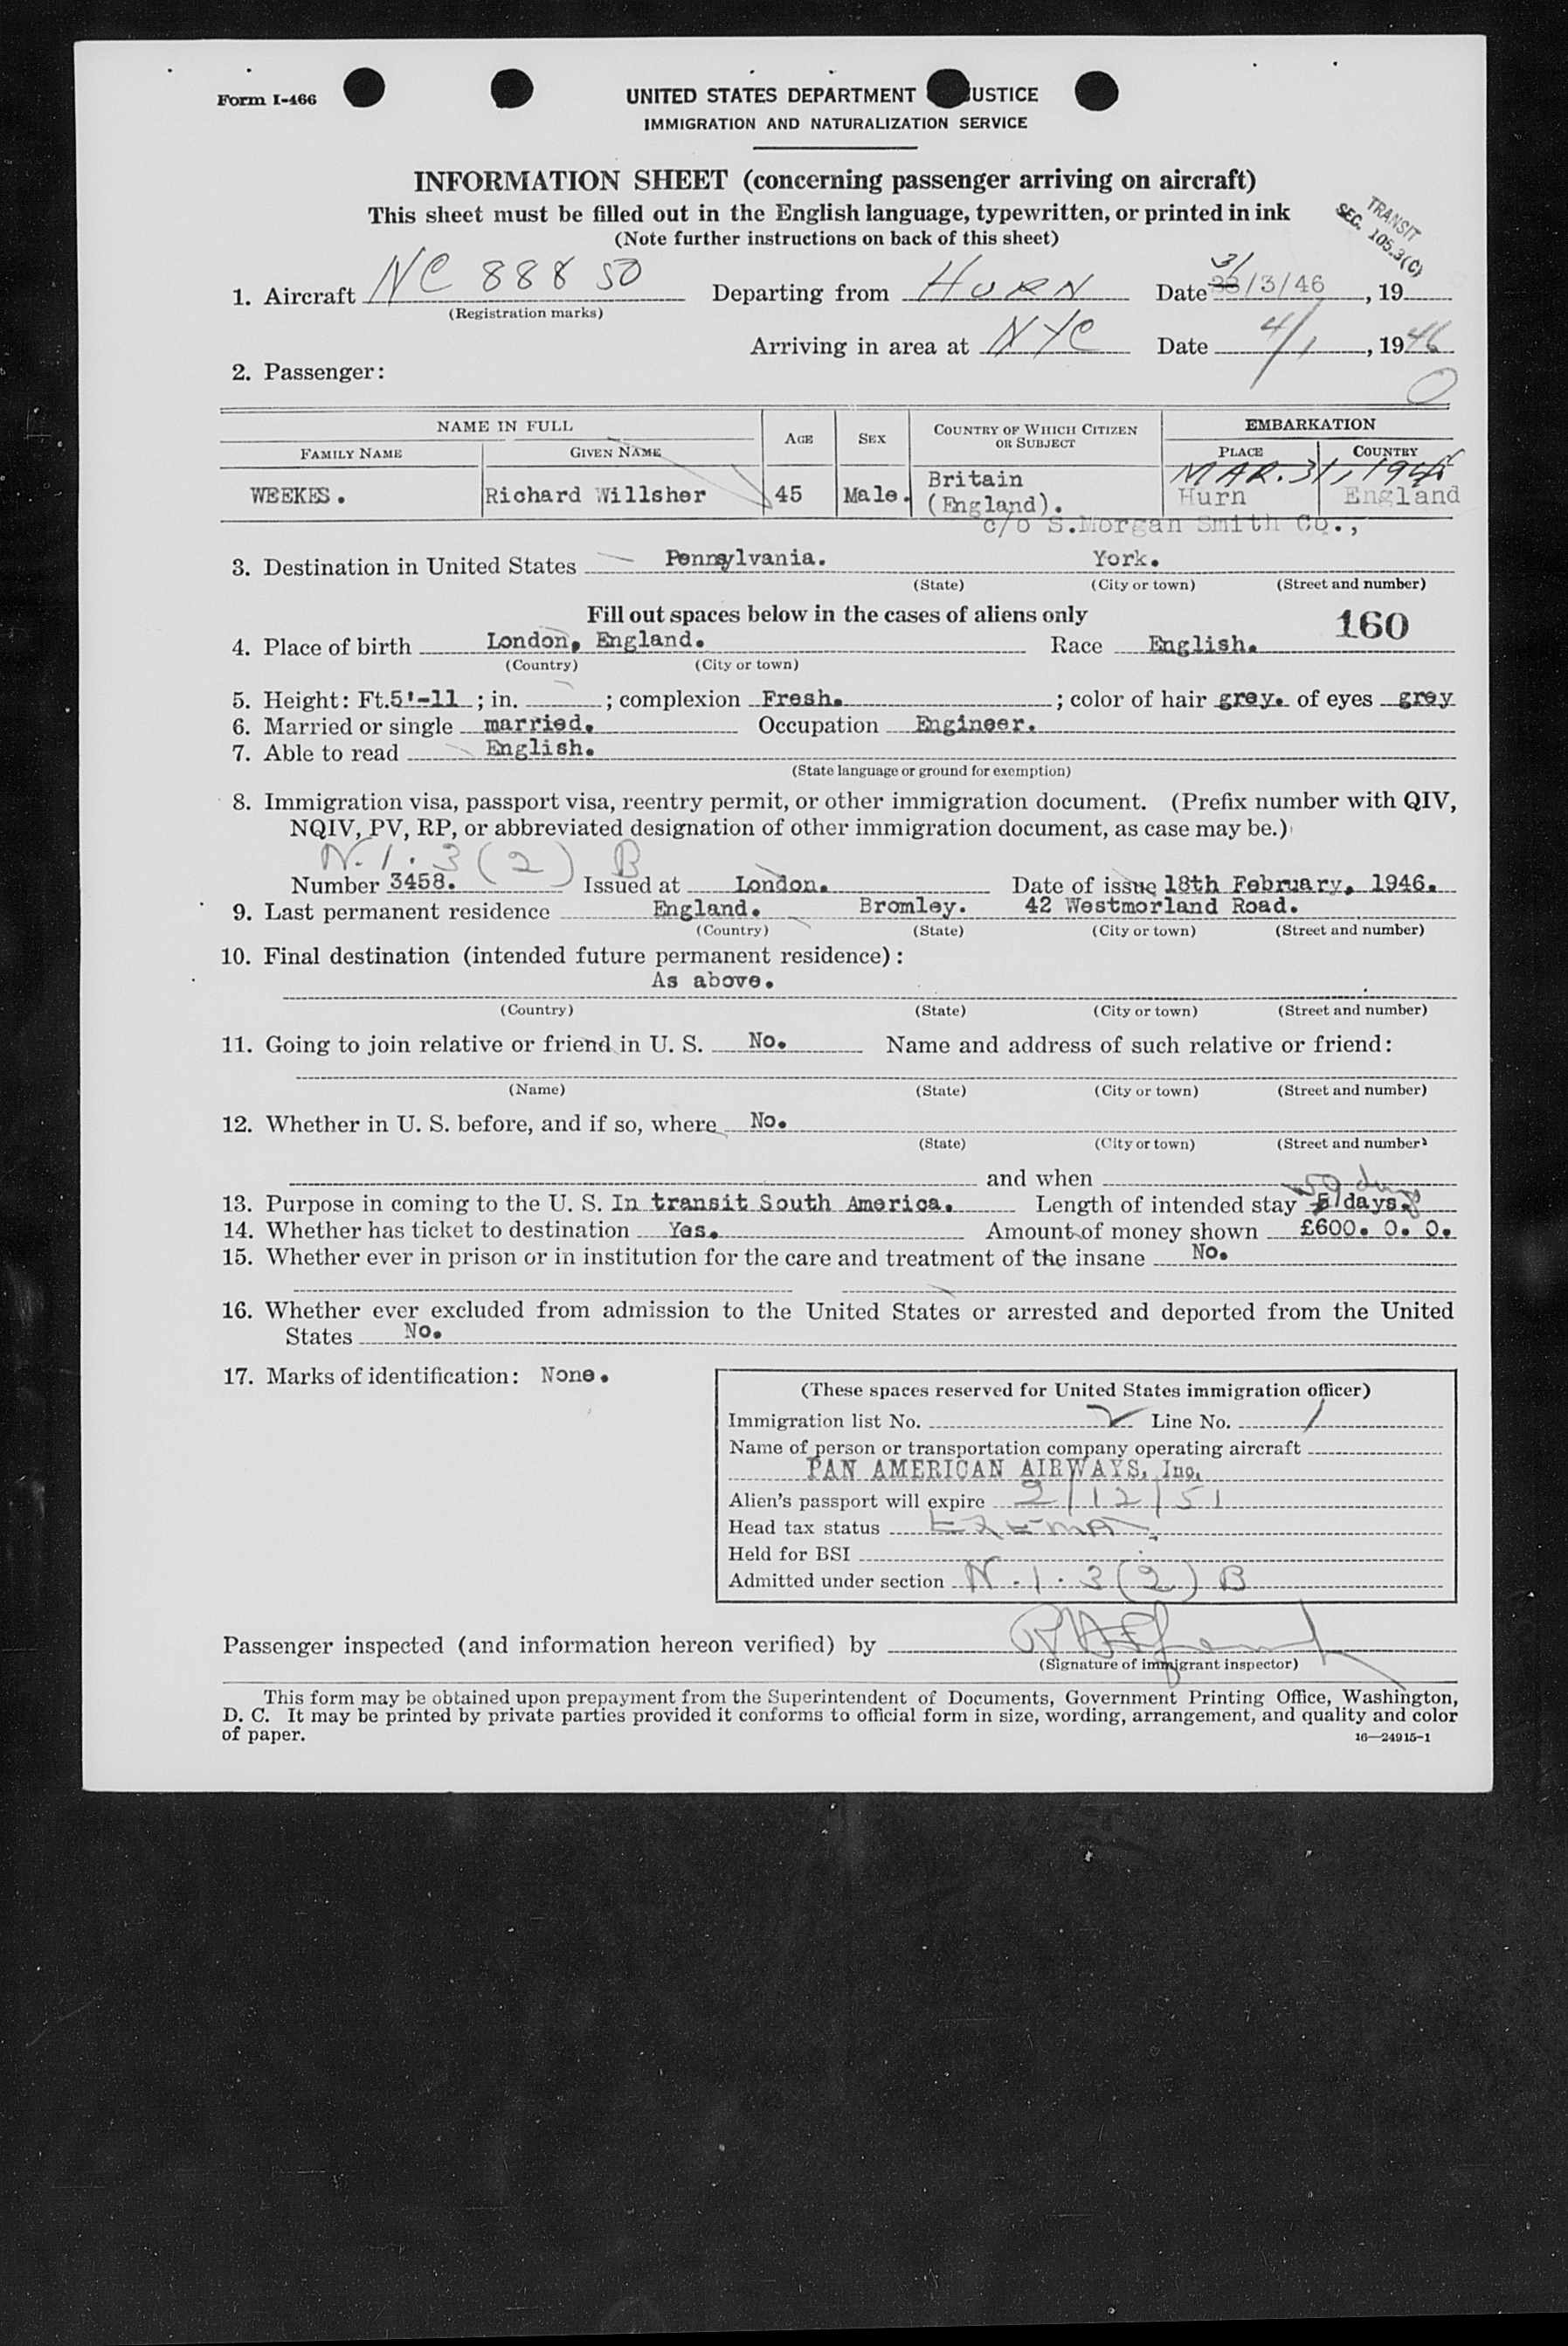 Form I-466
UNITED STATES DEPARTMENT USTICE
IMMIGRATION AND NATURALIZATION SERVICE
INFORMATION SHEET (concerning passenger arriving on aircraft)
This sheet must be filled out in the English language, typewritten, or printed in ink
(Note further instructions on back of this sheet)
TRANSIT
SEC. 105.3(C)
31
1. Aircraft NC 88850 Departing from HURN Date /3/46, 19
(Registration marks)
Arriving in area at NYC Date 4/1, 1946
2. Passenger:
0
NAME IN FULL AGE SEX COUNTRY OF WHICH CITIZEN OR SUBJECT EMBARKATION
FAMILY NAME GIVEN NAME PLACE COUNTRY
MAR. 31, 1946
WEEKES. Richard Willsher 45 Male. Britain (England). Hurn England
c/o S.Morgan Smith Co.,
3. Destination in United States Pennsylvania. York.
(State) (City or town) (Street and number)
Fill out spaces below in the cases of aliens only
160
4. Place of birth London, England. Race English.
(Country) (City or town)
5. Height: Ft. 5'-11 ; in. ; complexion Fresh. ; color of hair grey. of eyes grey
6. Married or single married. Occupation Engineer.
7. Able to read English.
(State language or ground for exemption)
8. Immigration visa, passport visa, reentry permit, or other immigration document. (Prefix number with QIV,
NQIV, PV, RP, or abbreviated designation of other immigration document, as case may be.)
N.1.3(2) B
Number 3458. Issued at London. Date of issue 18th February, 1946.
9. Last permanent residence England. Bromley. 42 Westmorland Road.
(Country) (State) (City or town) (Street and number)
10. Final destination (intended future permanent residence):
As above.
(Country) (State) (City or town) (Street and number)
11. Going to join relative or friend in U. S. No. Name and address of such relative or friend:
(Name) (State) (City or town) (Street and number)
12. Whether in U. S. before, and if so, where No.
(State) (City or town) (Street and number)
and when
59 days
13. Purpose in coming to the U. S. In transit South America. Length of intended stay 5 days.
14. Whether has ticket to destination Yes. Amount of money shown £600. 0. 0.
15. Whether ever in prison or in institution for the care and treatment of the insane No.
16. Whether ever excluded from admission to the United States or arrested and deported from the United
States No.
17. Marks of identification: None.
(These spaces reserved for United States immigration officer)
Immigration list No. 2 Line No. 1
Name of person or transportation company operating aircraft
PAN AMERICAN AIRWAYS, Inc.
Alien's passport will expire 2/12/51
Head tax status
Held for BSI
Admitted under section N.1.3(2) B
Passenger inspected (and information hereon verified) by
(Signature of immigrant inspector)
This form may be obtained upon prepayment from the Superintendent of Documents, Government Printing Office, Washington,
D. C. It may be printed by private parties provided it conforms to official form in size, wording, arrangement, and quality and color
of paper.
16—24915-1